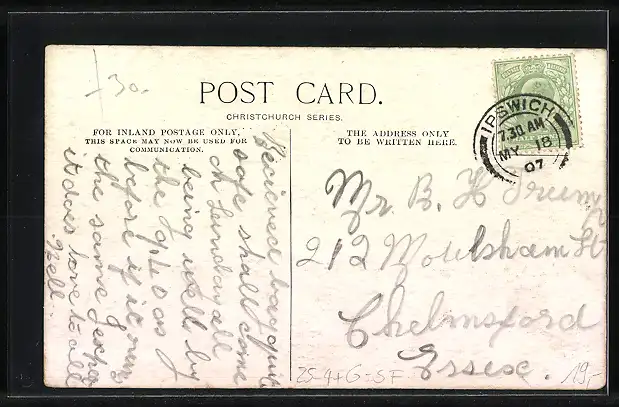 + 30.
POST CARD.
CHRISTCHURCH SERIES.
FOR INLAND POSTAGE ONLY,
THIS SPACE MAY NOW BE USED FOR
COMMUNICATION.
THE ADDRESS ONLY
TO BE WRITTEN HERE.
IPSWICH
7.30 AM
MY 18
07
Recieved bag quite
safe shall come
on Sunday all
being well by
the 9.40 as
before if it runs
the same
it does love to all
Nell
Mr. B. H
212 Moulsham St
Chelmsford
Essex.
19,-